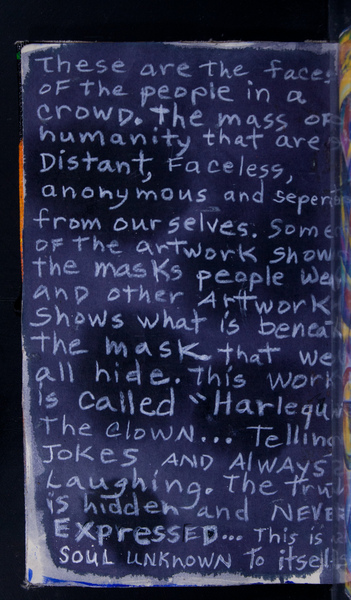 These are the faces
of the people in a
crowd. The mass of
humanity that are
Distant, Faceless,
anonymous and seper
from our selves. Some
of the artwork show
the masks people we
and other Artwork
Shows what is benea
the mask that we
all hide. This work
is called "Harlequ
The Clown... Telling
Jokes AND Always
Laughing. The tru
is hidden and NEVER
EXPRESSED... This is
SOUL UNKNOWN To itself